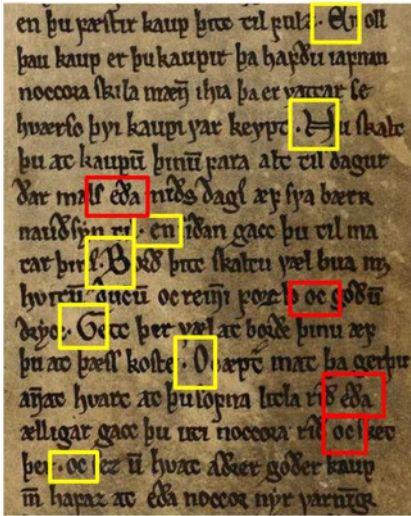 en þu fæſtir kaup þitt til fulz · En oll
þau kaup er þu kaupir þa hafðu iafnan
noccora ſkila mæn̄ ihia þa er vattar ſe
hværſo þvi kaupi var keypt · Nu ſkalt
þu at kaupū þinū fara alt til dagur
ðar malſ eða miðs dagſ æf sva bærr
nauðſyn til · en ſiðan gacc þu til ma
tar þinſ · Borð þitt ſkaltu væl bua m;
hvitū ducū oc reinni fozlo oc goðū
dryc · Gett þer væl at borðe þinu æf
þu at þæſſ koſte · Oc æpt mat þa gerþu
an̄at hvart at þu ſofna litla rið eða
ælligar gacc þu uti noccora rið oc ſkēt
þer · oc ſez ū hvat aðrer goðer kaup
m̄ hafaz at eða noccor nyr varningr